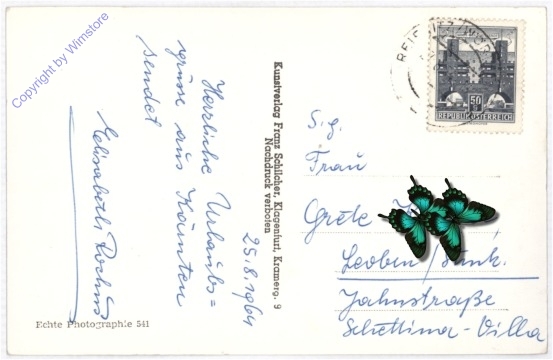 Copyright by Wimstore
25.8.1964
Herzliche Urlaubs=
grüsse aus Kärnten
sendet
Elisabeth
Echte Photographie 541
Kunstverlag Franz Schilcher, Klagenfurt, Kramerg. 9
Nachdruck verboten
50
REPUBLIK ÖSTERREICH
S.g.
Frau
Grete
Leoben
Jahnstraße
Villa